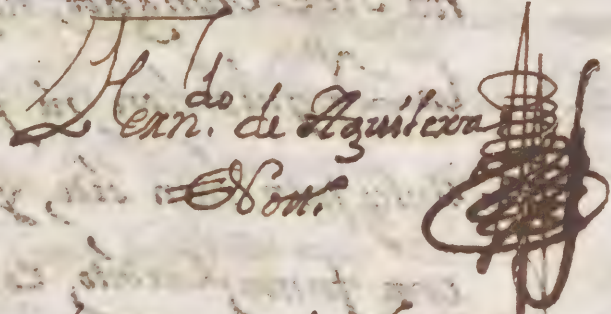 Fern.do de Aguilera
Nott.